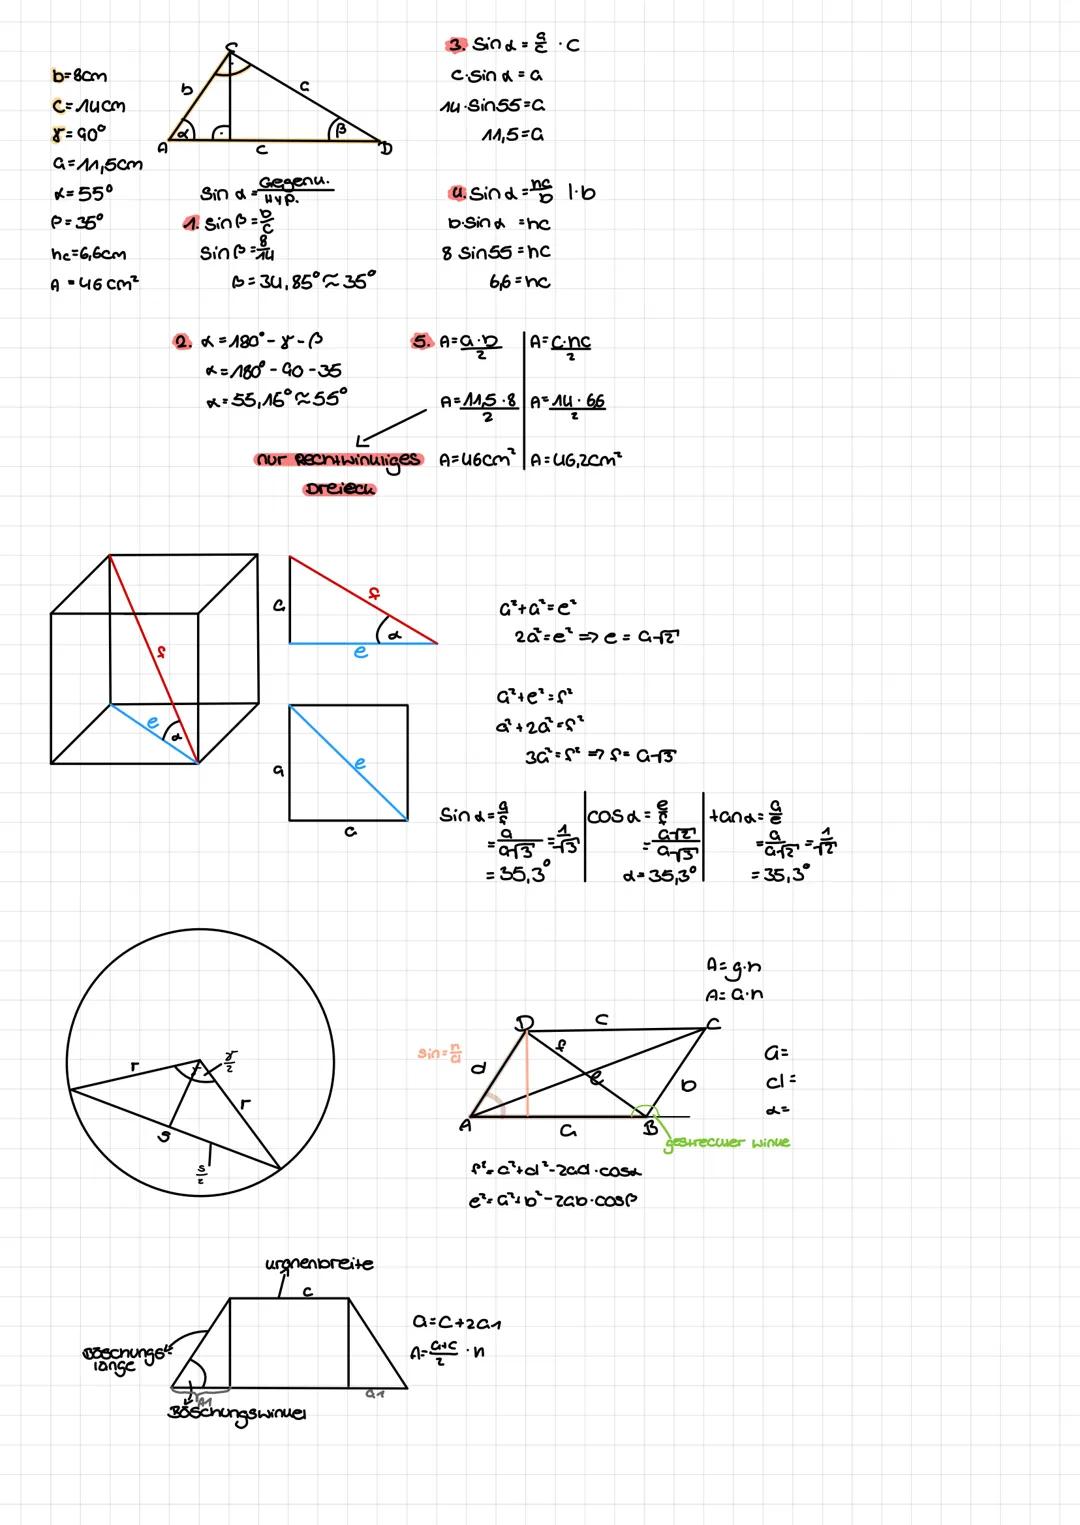 b=8cm
c=14cm
γ=90°
a=11,5cm
α=55°
β=35°
hc=6,6cm
A=46cm²
C
b
a
α
β
A
c
D
sin α = Gegenu. / Hyp.
1. sin β = b/c
sin β = 8/14
β=34,85° ≈ 35°
3. sin α = a/c · c
c·sin α = a
14·sin55=a
11,5=a
4. sin α = hc/b |·b
b·sin α = hc
8 sin55 = hc
6,6 = hc
2. α=180°-γ-β
α=180°-90-35
α=55,16° ≈ 55°
5. A=a·b/2 | A=c·hc/2
A=11,5·8/2 | A=14·66/2
A=46cm² | A=46,2cm²
nur Rechtwinkliges
Dreieck
f
e
α
a
f
α
e
a
e
a
a²+a²=e²
2a²=e² ⇒ e=a√2
a²+e²=f²
a²+2a²=f²
3a²=f² ⇒ f=a√3
sin α=a/f | cos α=e/f | tan α=a/e
=a/a√3=1/√3 | =a√2/a√3 | =a/a√2=1/√2
=35,3° | α=35,3° | =35,3°
r
γ/2
r
s
s/2
A=g·h
A=a·h
D
c
C
sin=h/d
d
f
e
b
A
a
B
gestreckter winke
a=
d=
α=
f²=a²+d²-2ad·cosα
e²=a²+b²-2ab·cosβ
Kronenbreite
c
Böschungs-
länge
a1
a1
Böschungswinkel
a=c+2a1
A=a+c/2 · h